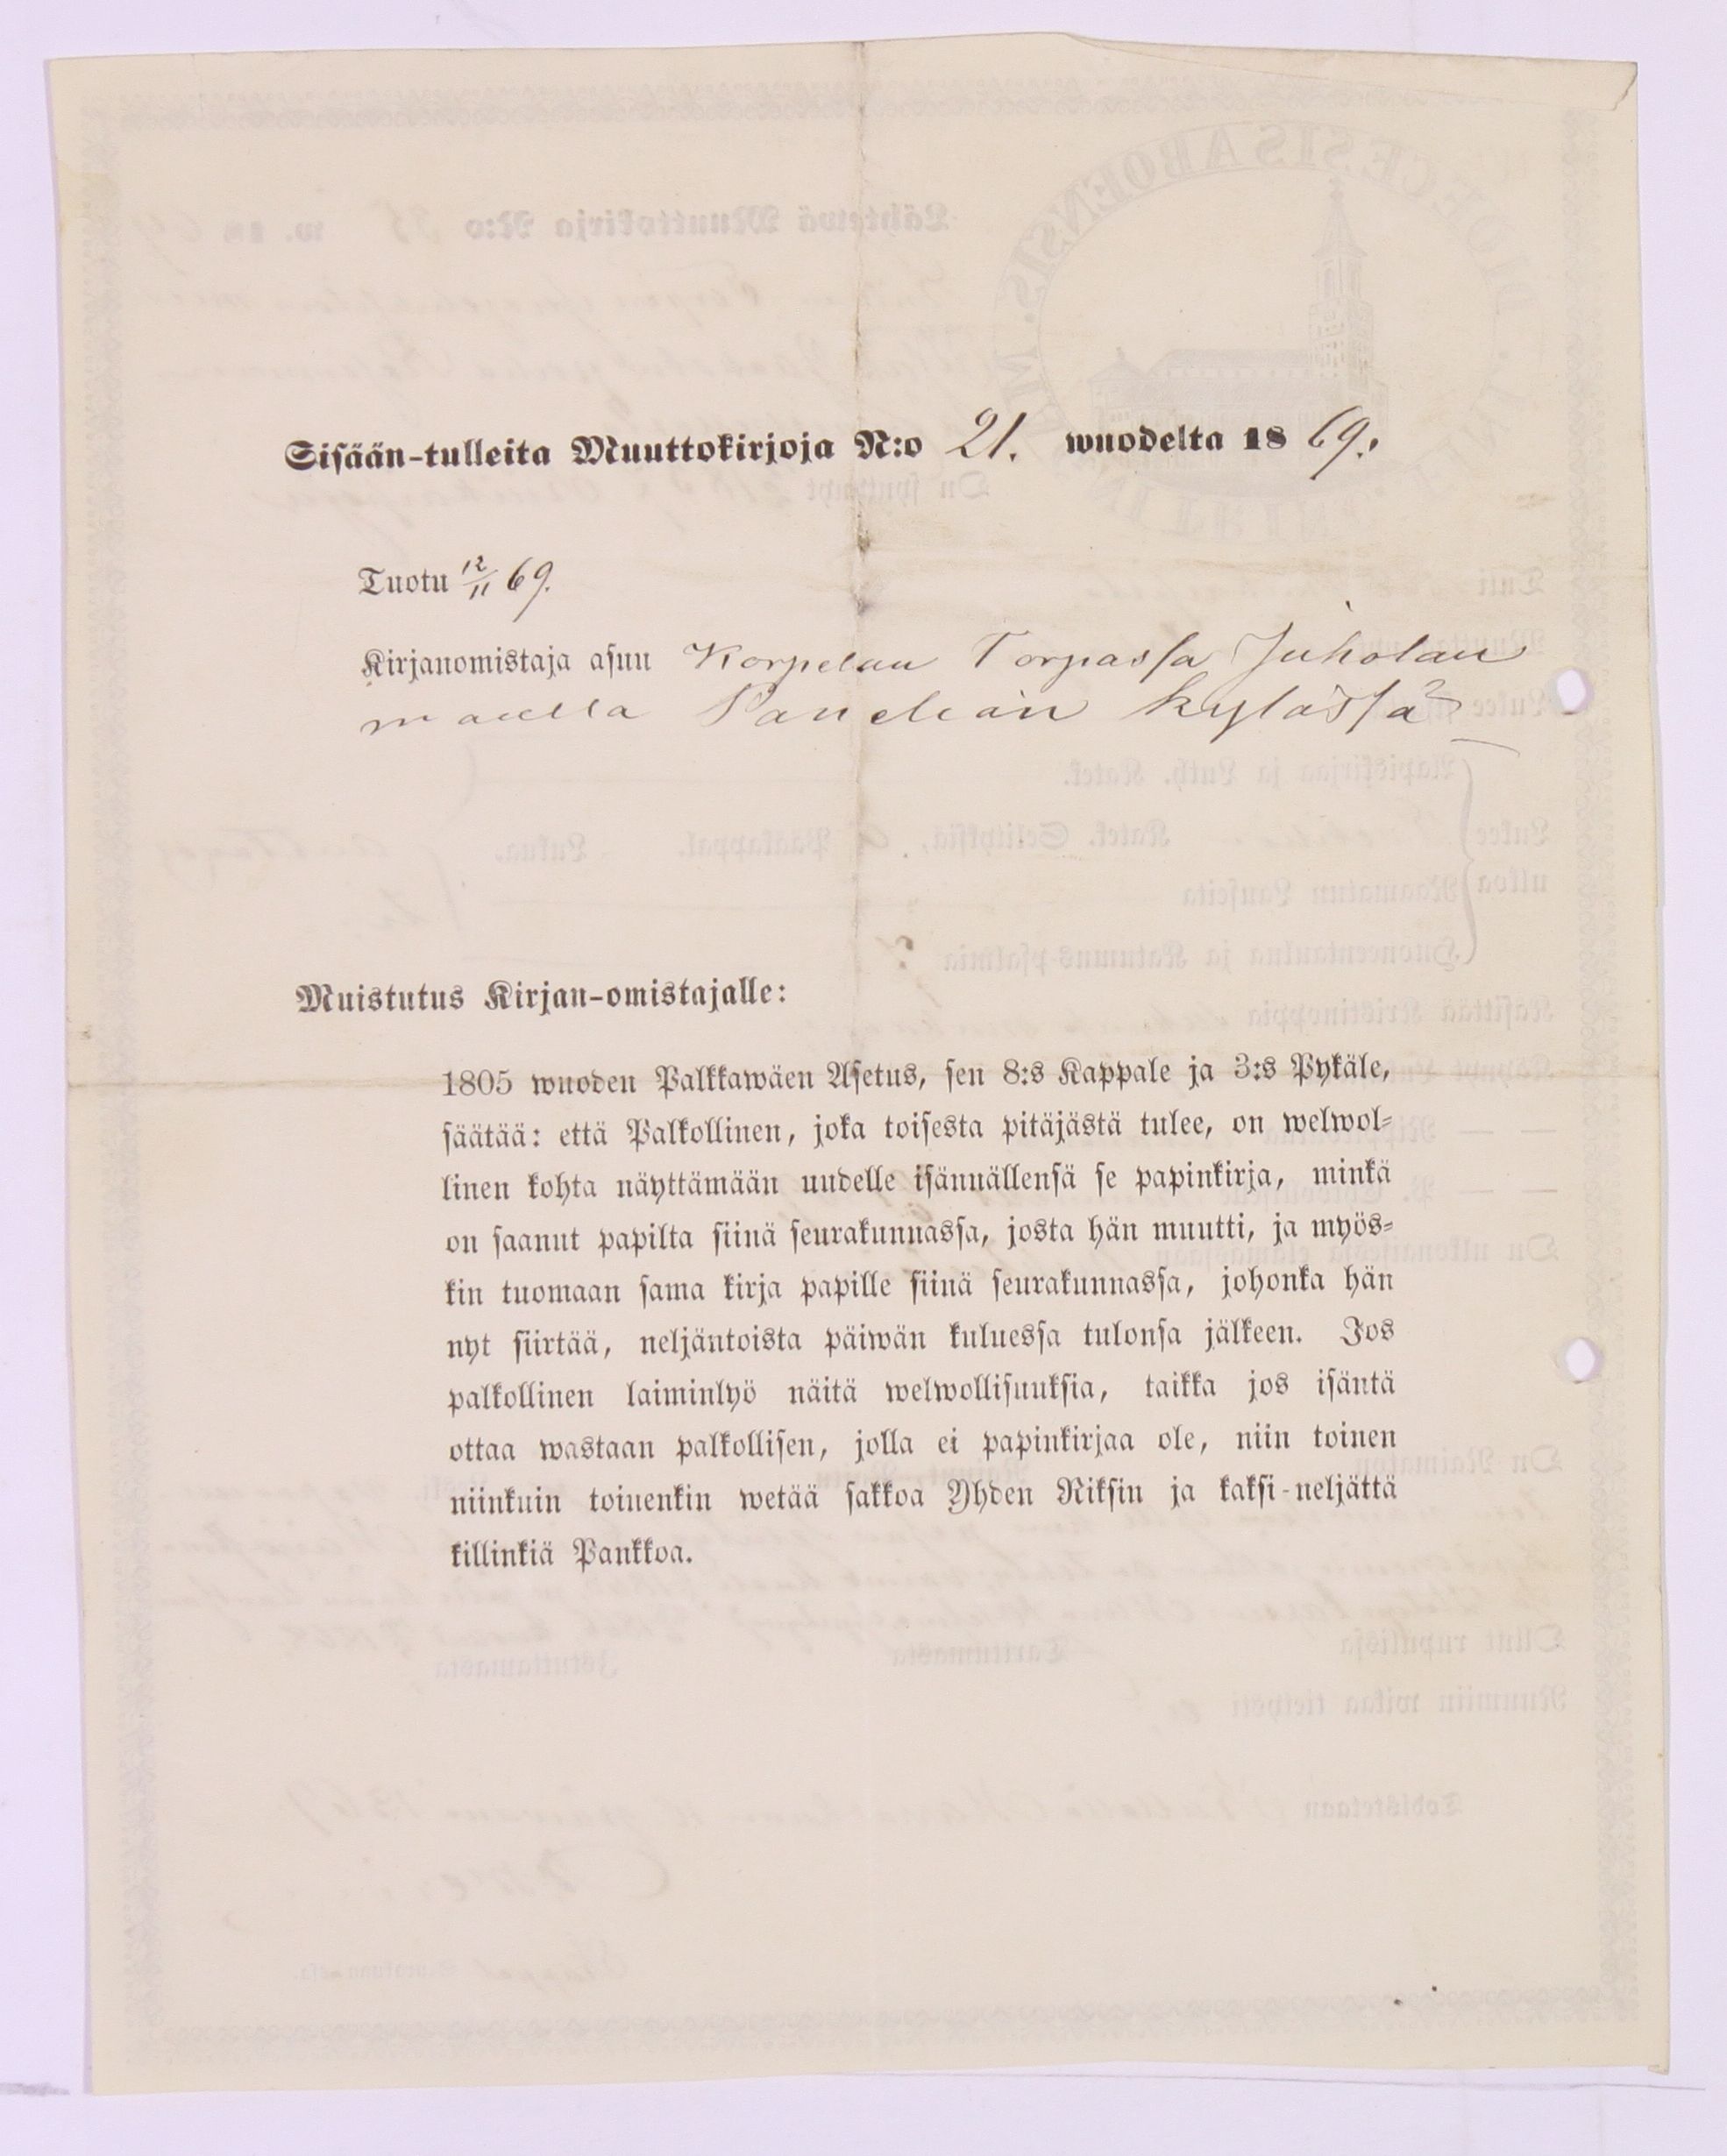 Sisään-tulleita Muuttokirjoja N:o 21. wuodelta 1869.
Tuotu 12/11 69.
Kirjanomistaja asuu Korpelan Torpassa Juholan
maalla Panelian kylässä
Muistutus Kirjan-omistajalle:
1805 wuoden Palkkawäen Asetus, sen 8:s Kappale ja 3:s Pykäle,
säätää: että Palkollinen, joka toisesta pitäjästä tulee, on welwol-
linen kohta näyttämään uudelle isännällensä se papinkirja, minkä
on saanut papilta siinä seurakunnassa, josta hän muutti, ja myös-
kin tuomaan sama kirja papille siinä seurakunnassa, johonka hän
nyt siirtää, neljäntoista päiwän kuluessa tulonsa jälkeen. Jos
palkollinen laiminlyö näitä welwollisuuksia, taikka jos isäntä
ottaa wastaan palkollisen, jolla ei papinkirjaa ole, niin toinen
niinkuin toinenkin wetää sakkoa Yhden Riksin ja kaksi-neljättä
killinkiä Pankkoa.